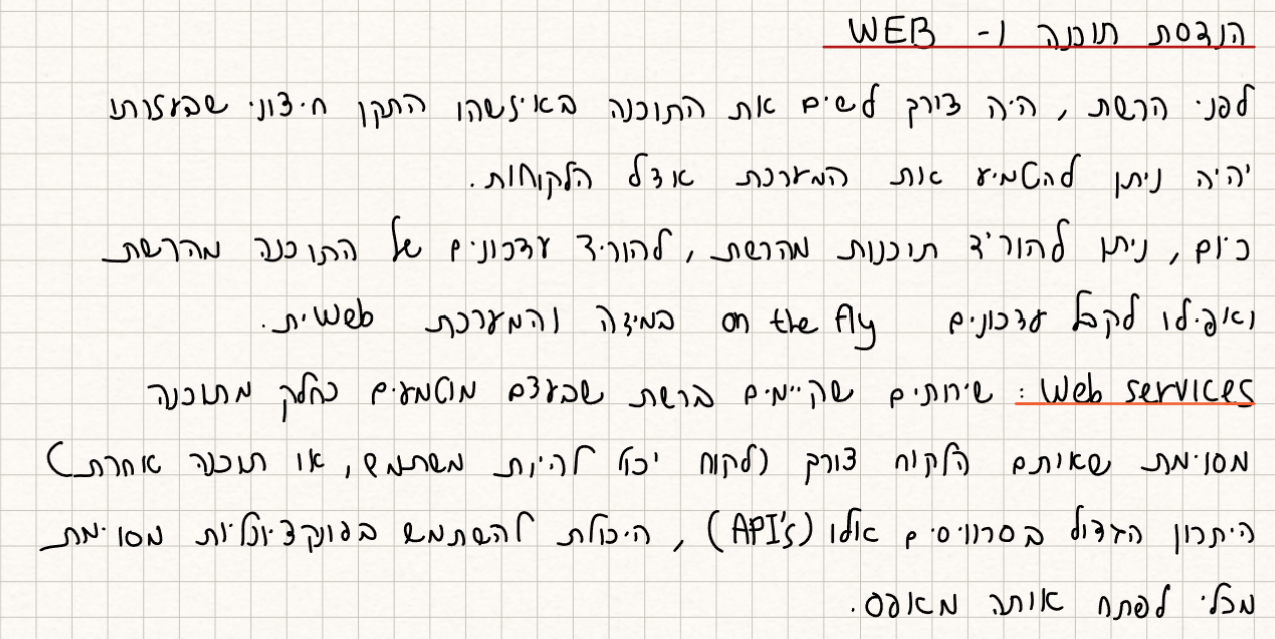 הנדסת תוכנה ו- WEB
לפני הרשת, היה צורך לשים את התוכנה באיזשהו התקן חיצוני שבעזרתו
יהיה ניתן להטמיע את המערכת אצל הלקוחות.
כיום, ניתן להוריד תוכנות מהרשת, להוריד עדכונים של התוכנה מהרשת
ואפילו לקבל עדכונים on the fly במידה והמערכת Webית.
Web services: שירותים שקיימים ברשת שבעצם מוטמעים כחלק מתוכנה
מסוימת שאותם הלקוח צורך (לקוח יכול להיות משתמש, או תוכנה אחרת)
היתרון הגדול בסרוויסים אלו (API's), היכולת להשתמש בפונקציונליות מסוימת
מבלי לפתח אותה מאפס.